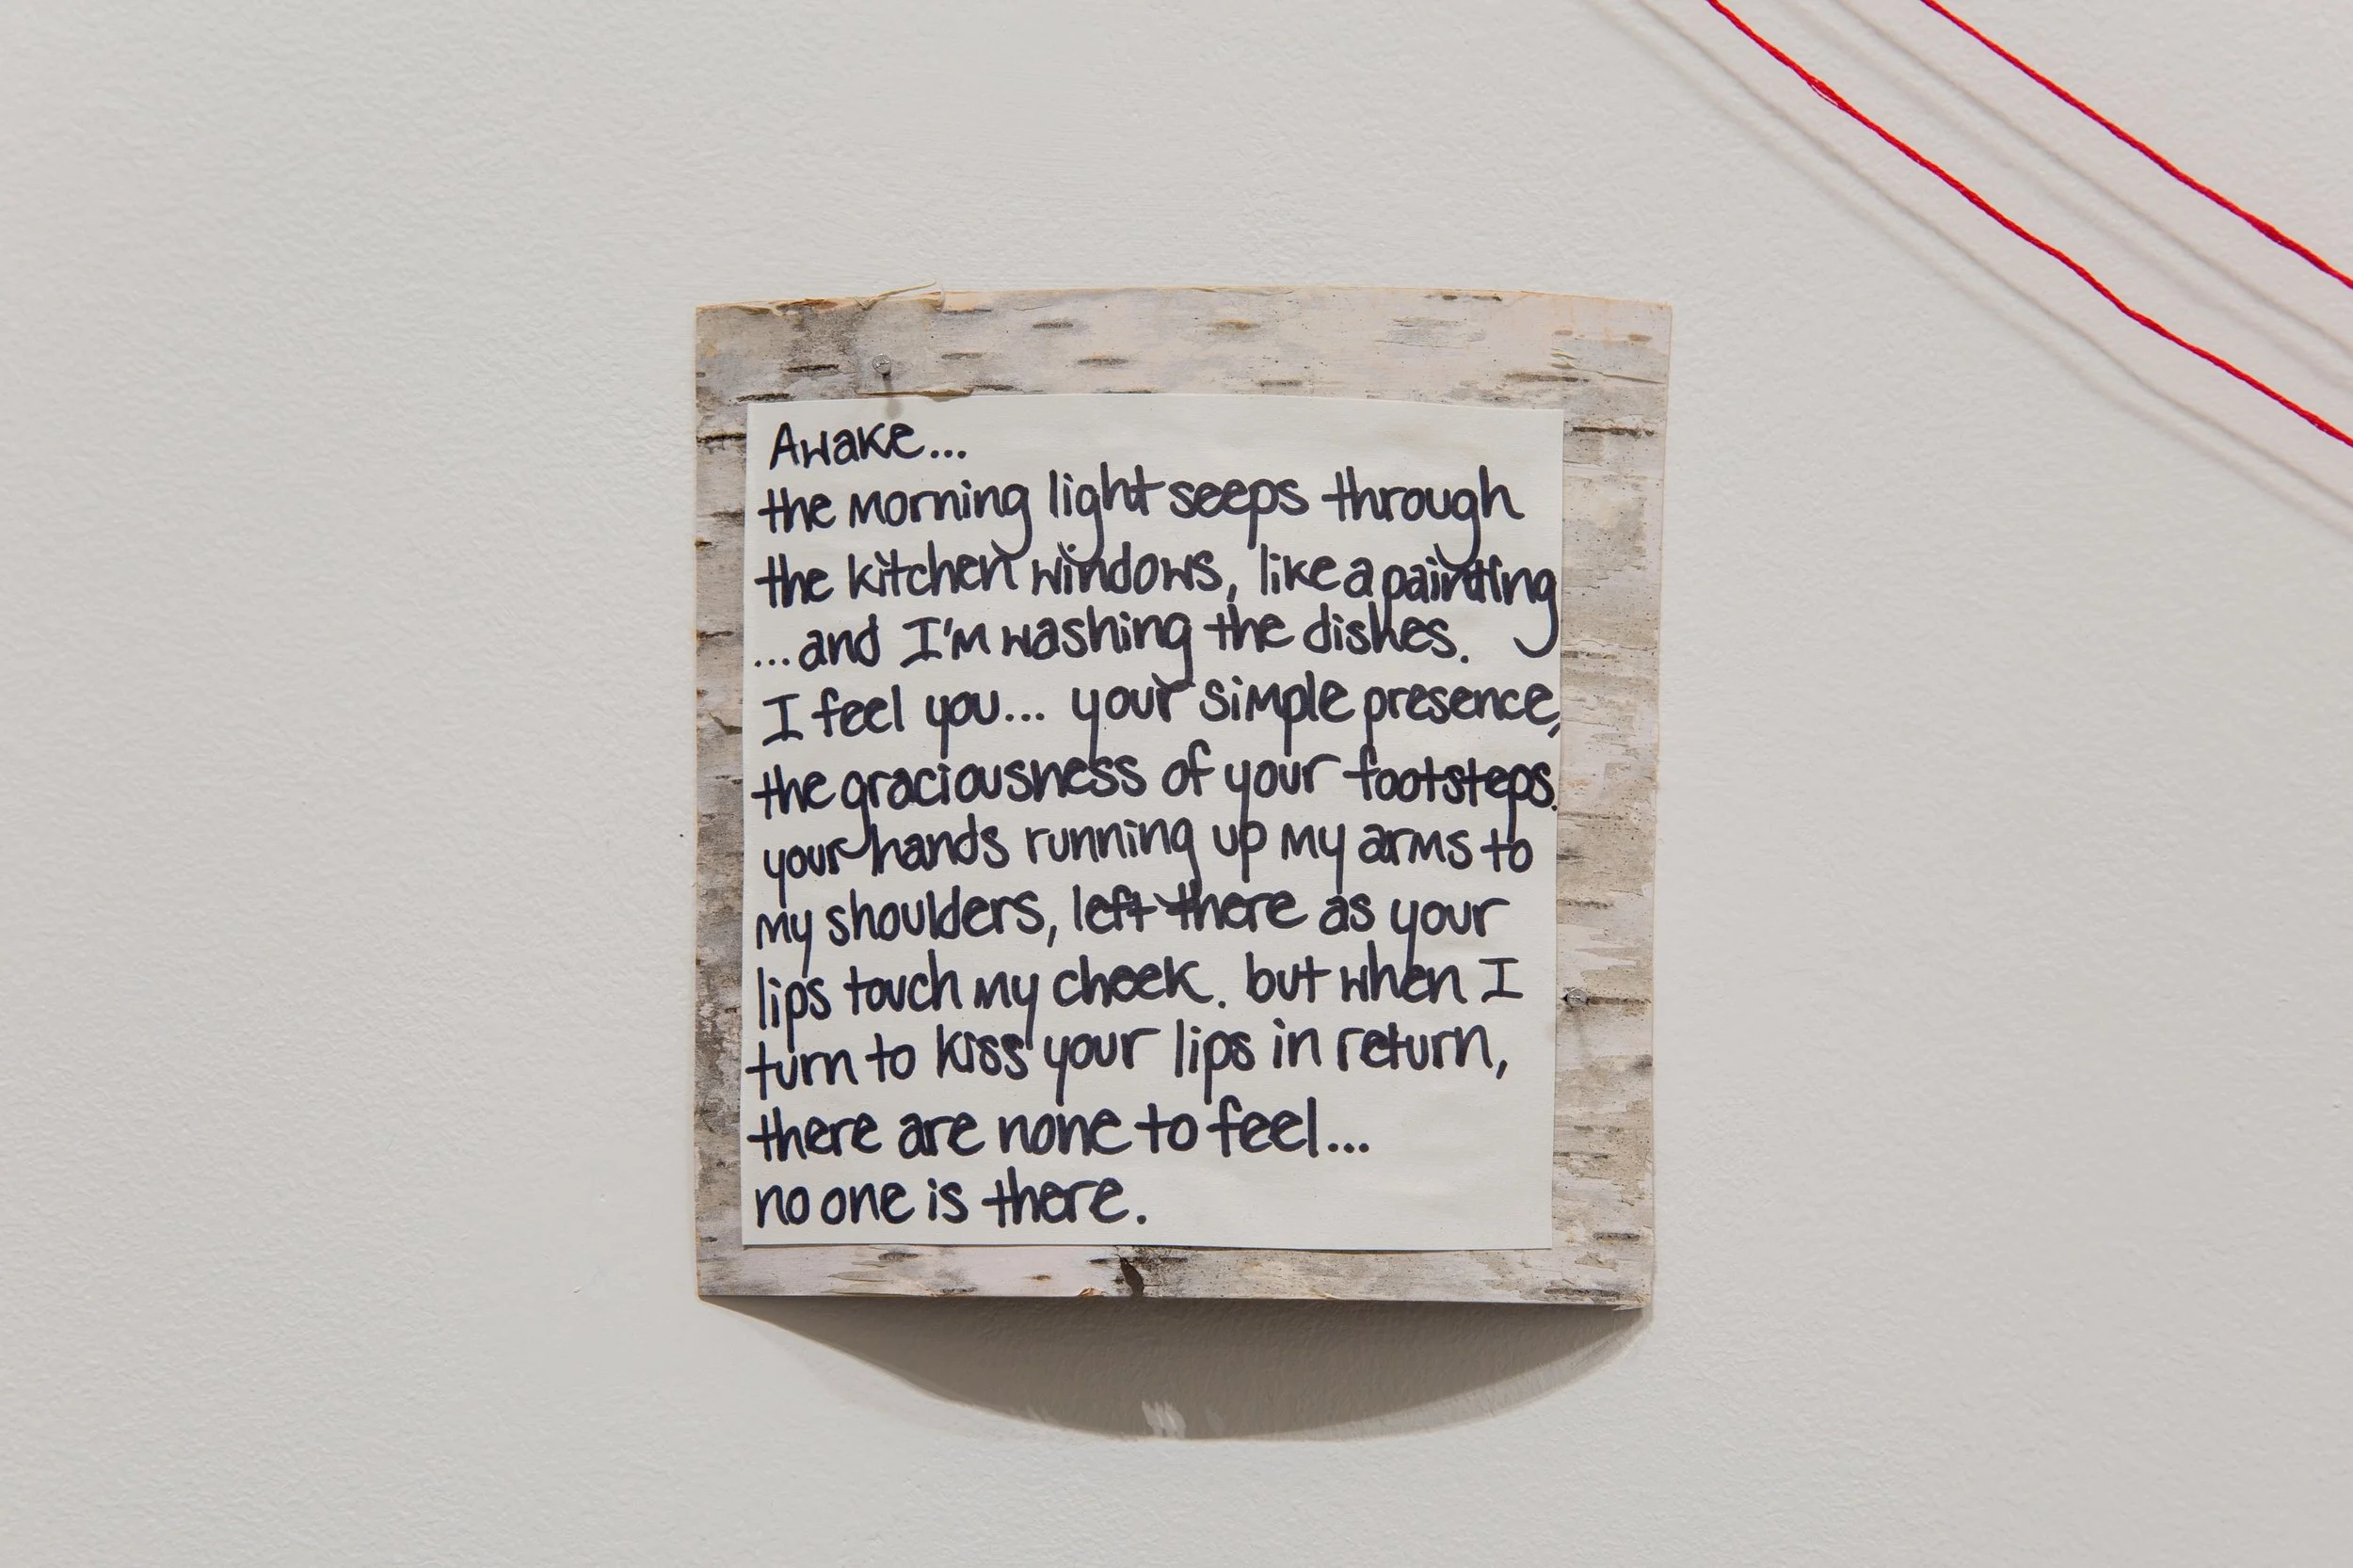 Awake...
the morning light seeps through
the kitchen windows, like a painting
...and I'm washing the dishes.
I feel you... your simple presence,
the graciousness of your footsteps.
your hands running up my arms to
my shoulders, left there as your
lips touch my cheek. but when I
turn to kiss your lips in return,
there are none to feel...
no one is there.